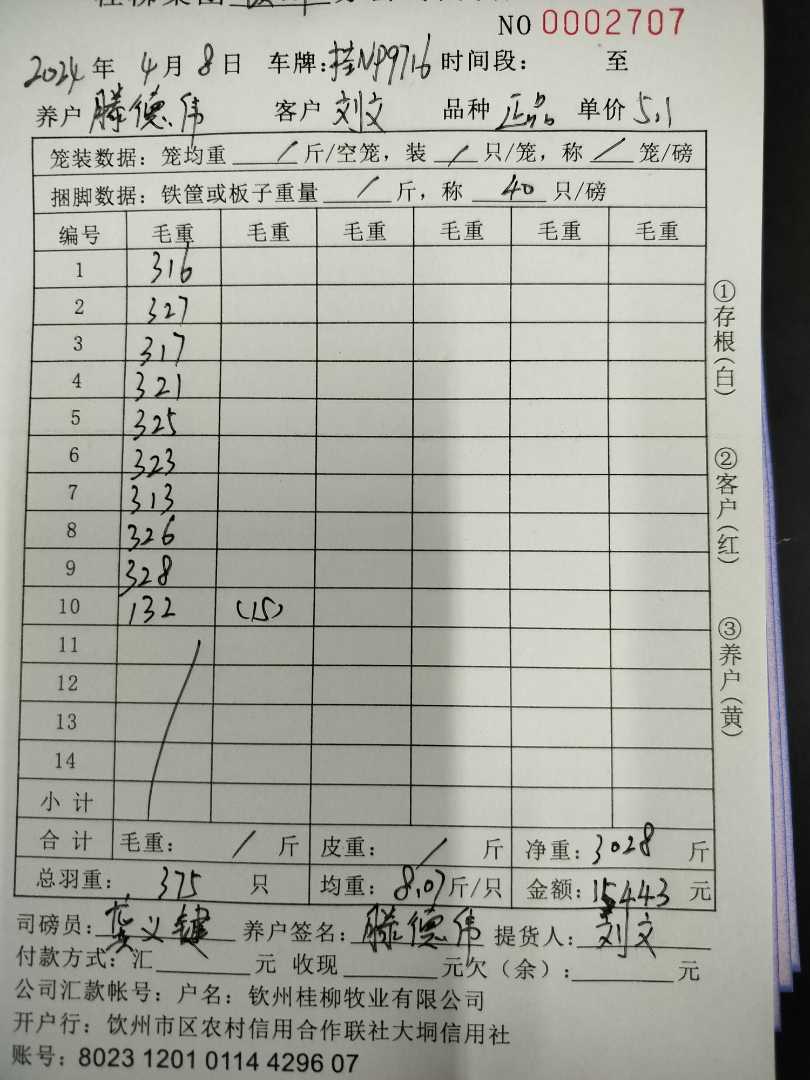 NO 0002707
2024 年 4 月 8 日 车牌:桂NP9716 时间段: 至
养户 滕德伟 客户 刘文 品种 正品 单价 5.1
笼装数据: 笼均重 / 斤/空笼, 装 / 只/笼, 称 / 笼/磅
捆脚数据: 铁筐或板子重量 / 斤, 称 40 只/磅
编号 毛重 毛重 毛重 毛重 毛重 毛重
1 316
2 327
3 317
4 321
5 325
6 323
7 313
8 326
9 328
10 132 (15)
11
12
13
14
小 计
合 计 毛重: / 斤 皮重: / 斤 净重: 3028 斤
总羽重: 375 只 均重: 8.07 斤/只 金额: 15443 元
司磅员: 龚义键 养户签名: 滕德伟 提货人: 刘文
付款方式: 汇 元 收现 元欠(余): 元
公司汇款帐号: 户名: 钦州桂柳牧业有限公司
开户行: 饮州市区农村信用合作联社大垌信用社
账号: 8023 1201 0114 4296 07
①存根(白)
②客户(红)
③养户(黄)